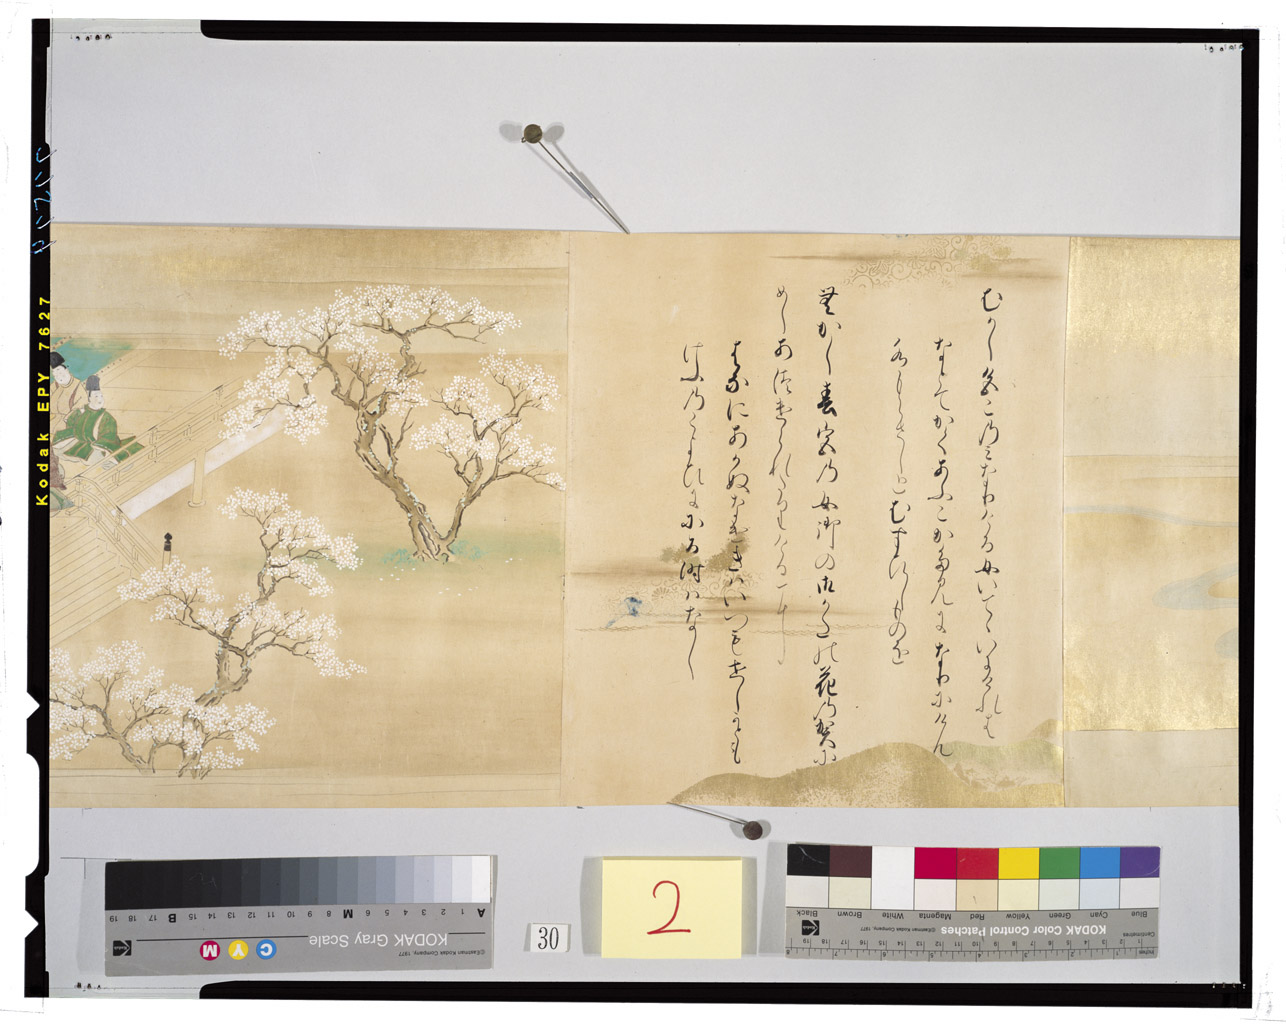 むかし色このみなりける女いてゝいにけれは
なとてかくあふこかたみになりにけん
水もらさしとむすひしものを
むかし春宮の女御の御かたの花の賀に
めしあつけられたりけるに
はなにあかぬなけきはいつもせしかとも
けふのこよひににる時はなし
Kodak EPY 7627
30
2
KODAK Gray Scale
©Eastman Kodak Company, 1977
C Y M
A 1 2 3 4 5 6 M 8 9 10 11 12 13 14 15 B 17 18 19
KODAK Color Control Patches
©Eastman Kodak Company, 1977
Blue Cyan Green Yellow Red Magenta White Brown Black
Centimetres
Inches